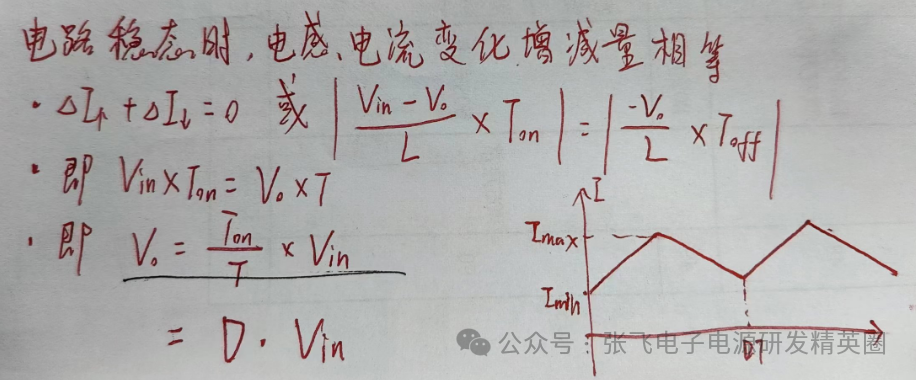 电路稳态时,电感、电流变化增减量相等
· ΔI↑ + ΔI↓ = 0 或 | (Vin - Vo)/L × Ton | = | -Vo/L × Toff |
· 即 Vin × Ton = Vo × T
· 即 Vo = Ton/T × Vin
= D · Vin
I
Imax
Imin
DT
公众号:张飞电子电源研发精英圈